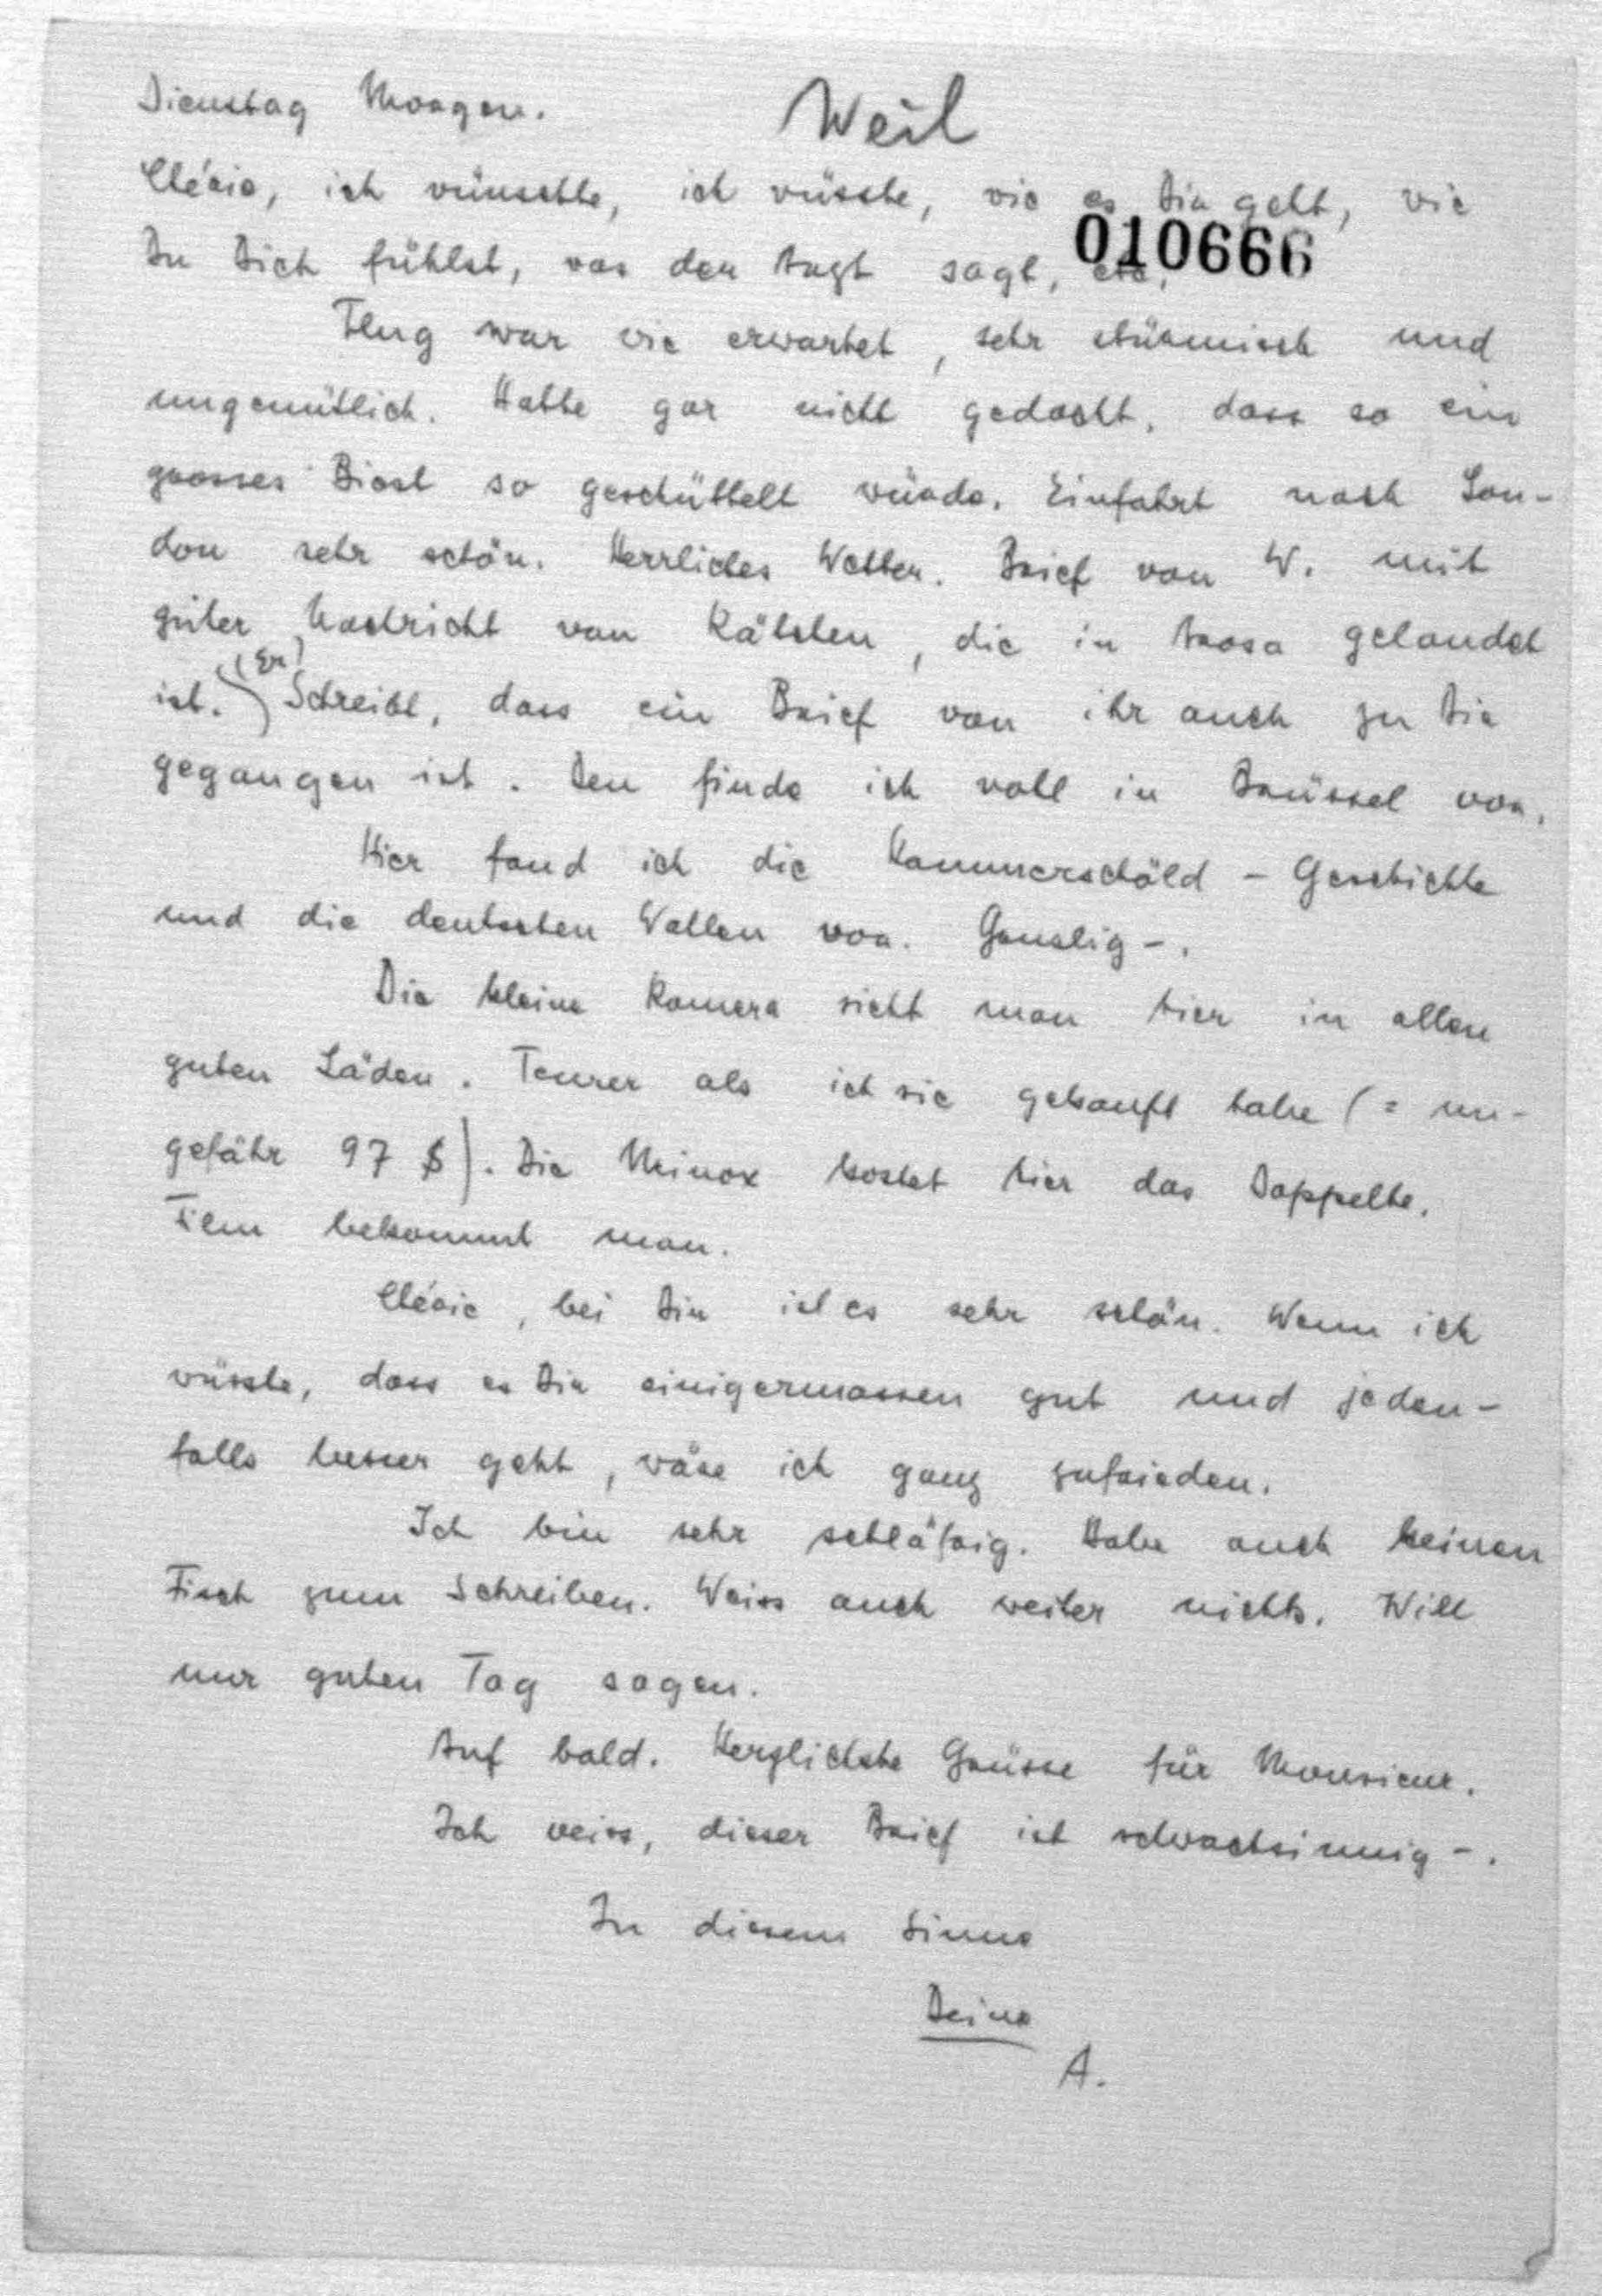 Dienstag Morgen.
Weil
Chérie, ich wünschte, ich wüsste, wie es Dir geht, wie
010666
Du Dich fühlst, was der Arzt sagt, etc.
Flug war wie erwartet, sehr stürmisch und
ungemütlich. Hatte gar nicht gedacht, dass so ein
grosses Biest so geschüttelt würde. Einfahrt nach Lon-
don sehr schön. Herrliches Wetter. Brief von W. mit
guter Nachricht von Kätchen, die in Arosa gelandet
ist. (Er) Schreibt, dass ein Brief von ihr auch zu Dir
gegangen ist. Den finde ich wohl in Brüssel vor.
Hier fand ich die Hammerschöld - Geschichte
und die deutschen Wahlen vor. Gruslig -.
Die kleine Kamera sieht man hier in allen
guten Läden. Teurer als ich sie gekauft habe (= un-
gefähr 97 $). Die Minox kostet hier das Doppelte.
Film bekommt man.
Chérie, bei Dir ist es sehr schön. Wenn ich
wüsste, dass es Dir einigermassen gut und jeden-
falls besser geht, wäre ich ganz zufrieden.
Ich bin sehr schläfrig. Habe auch keinen
Tisch zum Schreiben. Weiss auch weiter nichts. Will
nur guten Tag sagen.
Auf bald. Herzlichste Grüsse für Monsieur.
Ich weiss, dieser Brief ist schwachsinnig -.
In diesem Sinne
Deine
A.